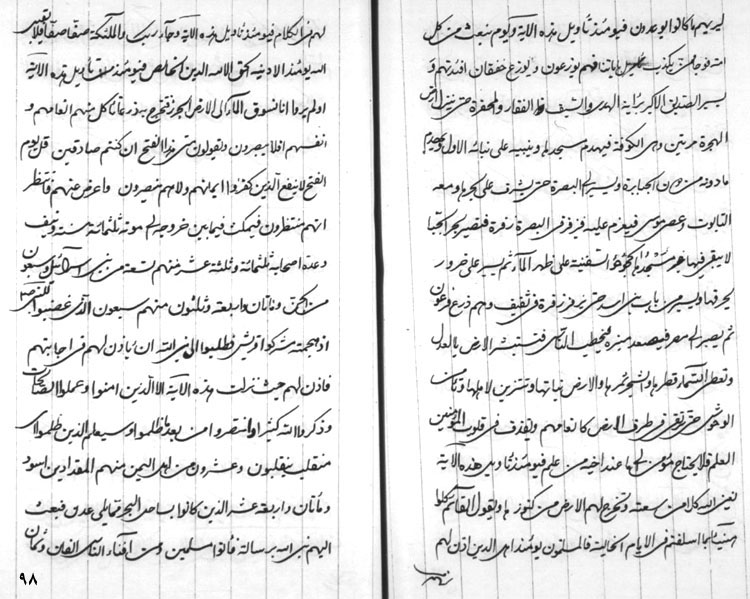 ليريهم ما كانوا يوعدون فيومئذ تأويل هذه الآية ويوم نبعث من كل
امة فوجا ممن يكذب باياتنا فهم يوزعون ويوزع خفقان افئدتهم و
يسير الصديق الاكبر براية الهدى والسيف ذو الفقار والمخصرة حتى ينزل ارض
الهجرة مرتين وهي الكوفة فيهدم مسجدها ويبنيه على بنائه الاول ويهدم
ما دونه من دور الجبابرة ويسير الى البصرة حتى يشرف على بحرها ومعه
التابوت وعصى موسى فيعزم عليه فيزفر في البصرة زفرة فتصير بحرا لجيا
لا يبقى فيها غير مسجدها كجؤجؤ السفينة على ظهر الماء ثم يسير الى حرور
يحرقها ويسير من باب بني اسد حتى يزفر زفرة في ثقيف وهم زرع فرعون
ثم يصير الى مصر فيصعد منبره فيخطب الناس فتستبشر الارض بالعدل
وتعطي السماء قطرها والشجر ثمرها والارض نباتها وتتزين لاهلها وتأمن
الوحوش حتى ترتعي في طرف الارض كانعامهم ويقذف في قلوب المؤمنين
العلم فلا يحتاج مؤمن الى ما عند اخيه من علم فيومئذ تأويل هذه الآية
يغني الله كلا من سعته وتخرج لهم الارض من كنوزها ويقول القائم كلوا
هنيئا بما اسلفتم في الايام الخالية فالمسلمون يومئذ اهل الدين اذن لهم
لهم في الكلام فيومئذ تأويل هذه الآية وجاء ربك والملئكة صفا صفا فلا يقبل
الله يومئذ الا دينه الحق الا لله الدين الخالص فيومئذ تأويل هذه الآية
اولم يروا انا نسوق الماء الى الارض الجرز فنخرج به زرعا تأكل منهم انعامهم و
انفسهم افلا يبصرون ويقولون متى هذا الفتح ان كنتم صادقين قل يوم
الفتح لا ينفع الذين كفروا ايمانهم ولا هم ينصرون واعرض عنهم فانتظر
انهم منتظرون فيمكث فيما بين خروجه الى موته ثلثمائة سنة ونيف
وعدة اصحابه ثلثمائة وثلثة عشر منهم تسعة من بني اسرائيل وسبعون
من الجن ومأتان واربعة وثلثون منهم سبعون الذين غضبوا للنبي ص
اذ هجمته مشركوا قريش فطلبوا الى نبي الله ان يأذن لهم في اجابتهم
فاذن لهم حيث نزلت هذه الآية الا الذين امنوا وعملوا الصالحات
وذكروا الله كثيرا وانتصروا من بعد ما ظلموا وسيعلم الذين ظلموا اي
منقلب ينقلبون وعشرون من اهل اليمن منهم المقداد بن اسود
ومأتان واربعة عشر الذين كانوا بساحل البحر مما يلي عدن فبعث
اليهم نبي الله برسالة فاتوا مسلمين ومن افناء الناس الفان وثمان
٩٨